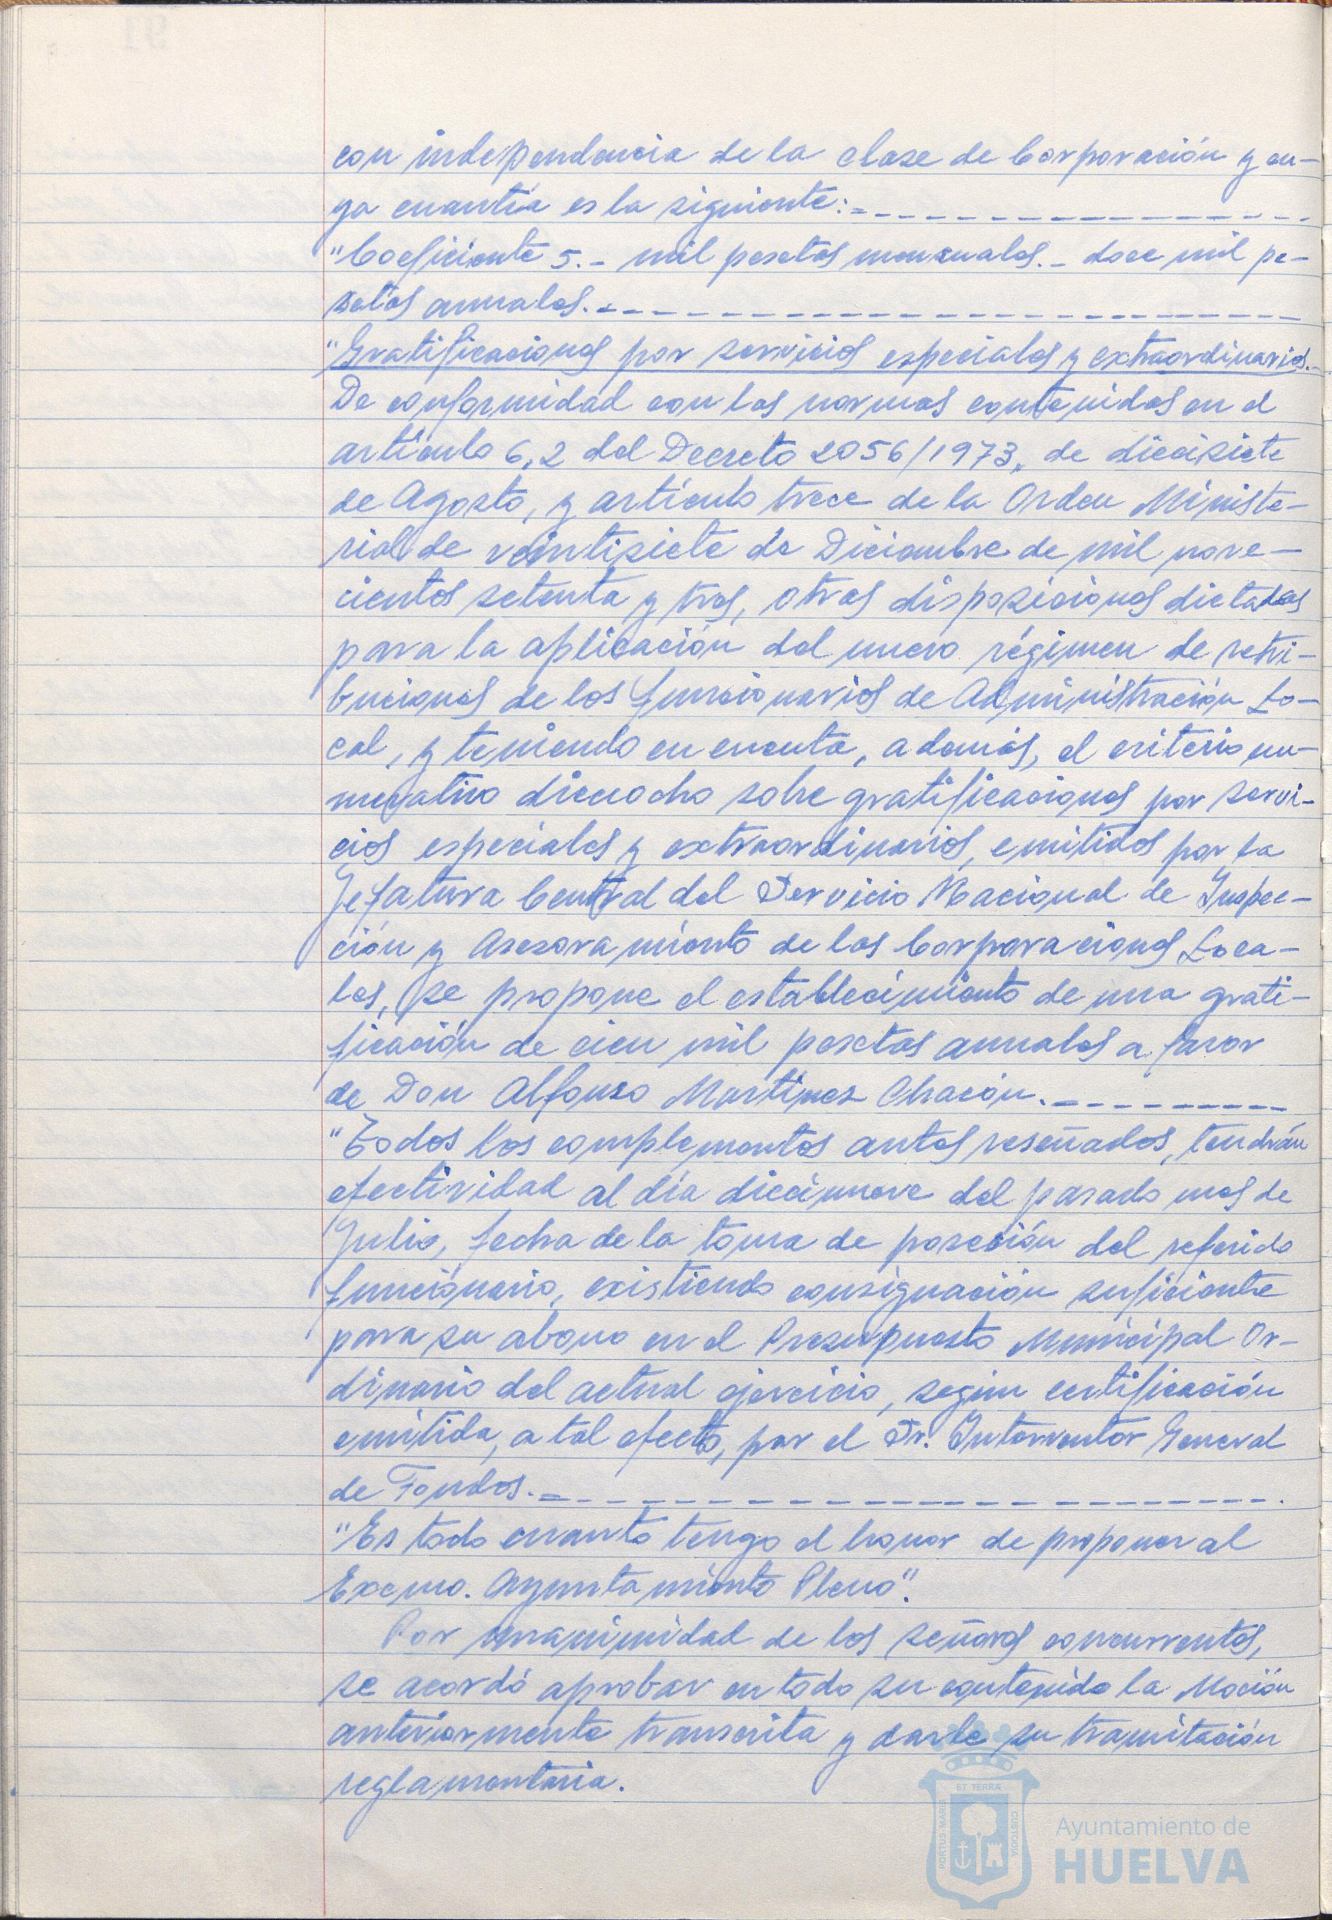 con independencia de la clase de Corporación y cu-
ya cuantía es la siguiente:
"Coeficiente 5.- mil pesetas mensuales.- doce mil pe-
setas anuales.
"Gratificaciones por servicios especiales y extraordinarios.
De conformidad con las normas contenidas en el
artículo 6,2 del Decreto 2056/1973, de diecisiete
de Agosto, y artículo trece de la Orden Ministe-
rial de veintisiete de Diciembre de mil nove-
cientos setenta y tres, otras disposiciones dictadas
para la aplicación del nuevo régimen de retri-
buciones de los funcionarios de Administración Lo-
cal, y teniendo en cuenta, además, el criterio nu-
merativo dieciocho sobre gratificaciones por servi-
cios especiales y extraordinarios, emitidos por la
Jefatura Central del Servicio Nacional de Inspec-
ción y Asesoramiento de las Corporaciones Loca-
les, se propone el establecimiento de una grati-
ficación de cien mil pesetas anuales a favor
de Don Alfonso Martinez Chacón.
"Todos los complementos antes reseñados, tendrán
efectividad al día diecinueve del pasado mes de
Julio, fecha de la toma de posesión del referido
funcionario, existiendo consignación suficiente
para su abono en el Presupuesto Municipal Or-
dinario del actual ejercicio, según certificación
emitida, a tal efecto, por el Sr. Interventor General
de Fondos.
"Es todo cuanto tengo el honor de proponer al
Excmo. Ayuntamiento Pleno".
Por unanimidad de los señores concurrentes,
se acordó aprobar en todo su contenido la Moción
anteriormente transcrita y darle su tramitación
reglamentaria.
ET TERRA
PORTUS MARIS
CUSTODIA
Ayuntamiento de
HUELVA